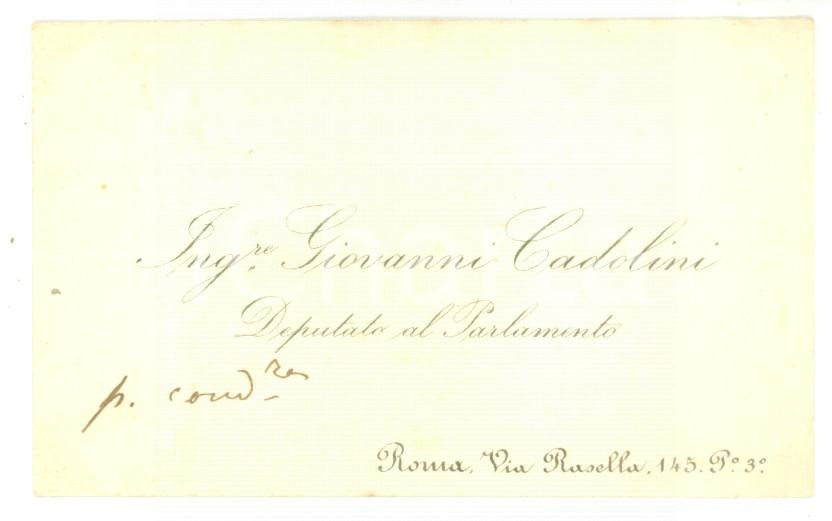 Ing.re Giovanni Cadolini
Deputato al Parlamento
p. cond.re
Roma, Via Rasella, 145. P.o 3.o